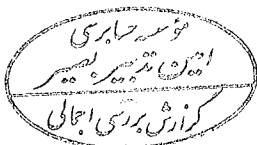 موسسه حسابرسی
امین تدبیر بصیر
گزارش بررسی اجمالی